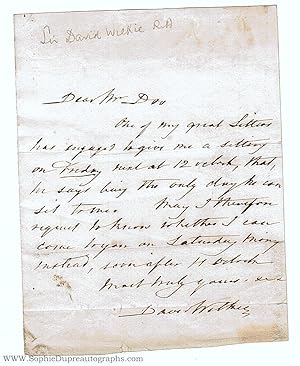 Sir David Wilkie RA
Dear Mr Doo
One of my great Sitters
has engaged to give me a sitting
on Friday next at 12 oclock, that,
he says being the only day he can
sit to me. May I therefore
request to know whether I can
come to you on Saturday Morng
instead, soon after 11 Oclock
Most truly yours
David Wilkie
www.SophieDupreautographs.com